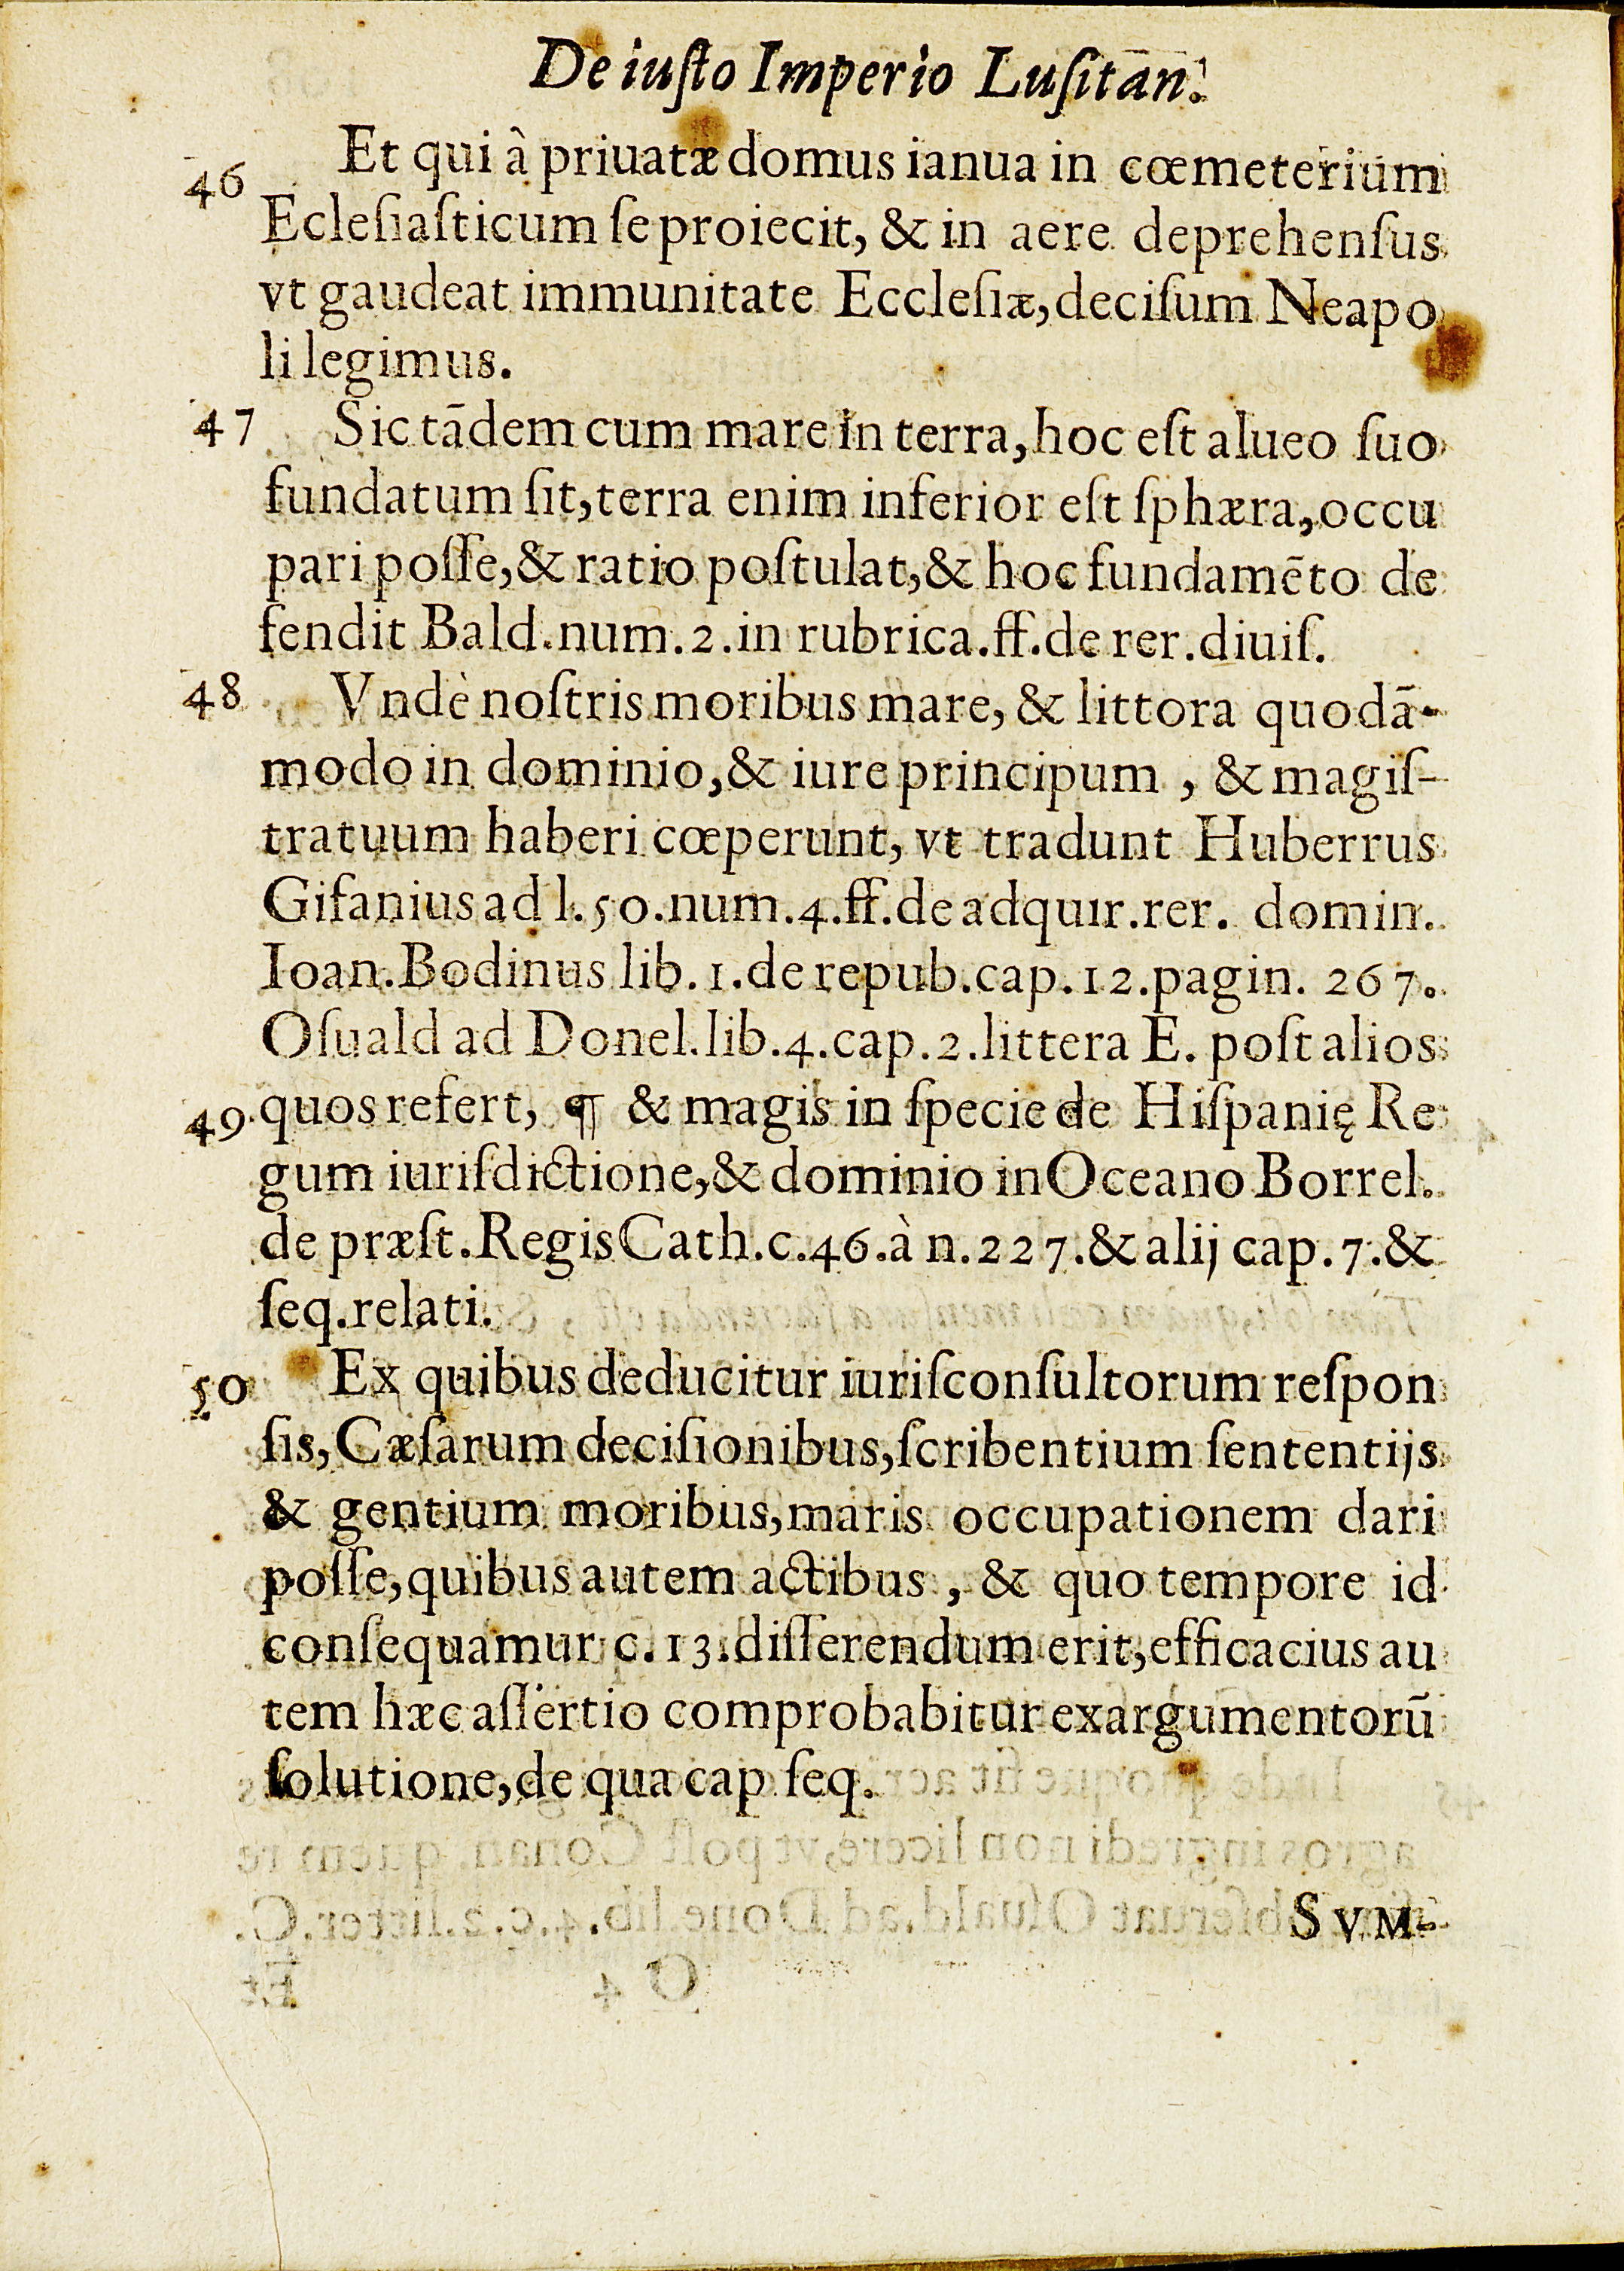 De iuſto Imperio Luſitan.
46 Et qui â priuatæ domus ianua in cœmeterium
Ecleſiaſticum ſe proiecit, & in aere deprehenſus
vt gaudeat immunitate Eccleſiæ, deciſum Neapo
li legimus.
47 Sic tādem cum mare in terra, hoc eſt alueo ſuo
fundatum ſit, terra enim inferior eſt ſphæra, occu
pari poſſe, & ratio poſtulat, & hoc fundamēto de
fendit Bald. num. 2. in rubrica. ff. de rer. diuiſ.
48 Vndè noſtris moribus mare, & littora quodā-
modo in dominio, & iure principum , & magiſ-
tratuum haberi cœperunt, vt tradunt Huberrus
Gifanius ad l. 50. num. 4. ff. de adquir. rer. domin.
Ioan. Bodinus lib. 1. de repub. cap. 12. pagin. 267.
Oſuald ad Donel. lib. 4. cap. 2. littera E. poſt alios
49. quos refert, ¶ & magis in ſpecie de Hiſpanię Re
gum iuriſdictione, & dominio in Oceano Borrel.
de præſt. Regis Cath. c. 46. à n. 227. & alij cap. 7. &
ſeq. relati.
50 Ex quibus deducitur iuriſconſultorum reſpon
ſis, Cæſarum deciſionibus, ſcribentium ſententijs
& gentium moribus, maris occupationem dari
poſſe, quibus autem actibus , & quo tempore id
conſequamur c. 13. diſſerendum erit, efficacius au
tem hæc aſſertio comprobabitur ex argumentorū
ſolutione, de qua cap ſeq.
SVM-